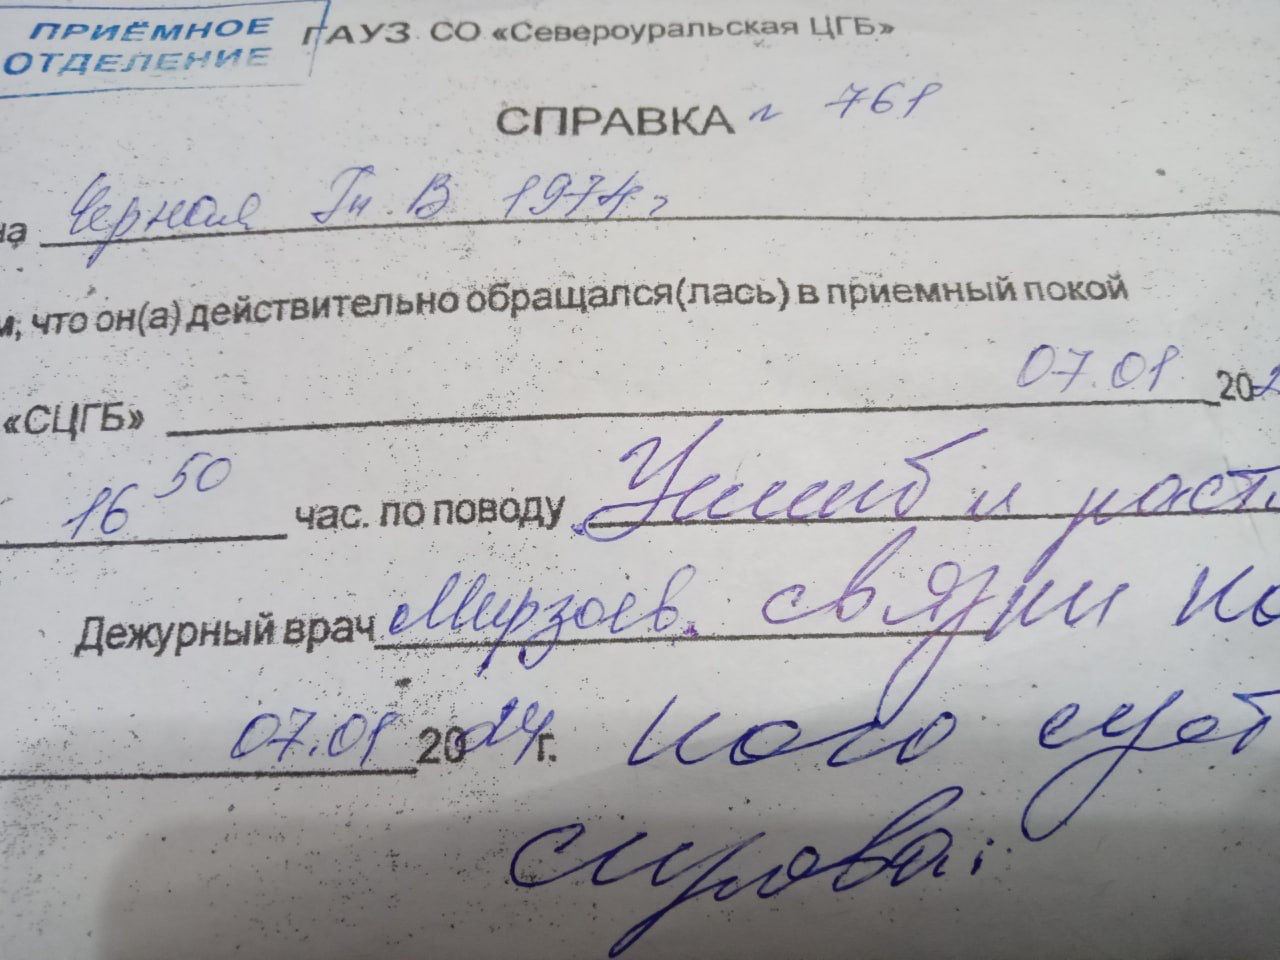 ПРИЁМНОЕ
ОТДЕЛЕНИЕ
ГАУЗ СО «Североуральская ЦГБ»
СПРАВКА № 761
на Черная Ги. В 1974г
м, что он(а) действительно обращался(лась) в приемный покой
«СЦГБ» 07.01 202
16 50 час. по поводу Ушиб и раст
Дежурный врач Мирзоев. связки ко
07.01 2024 г. ного суст
справа.